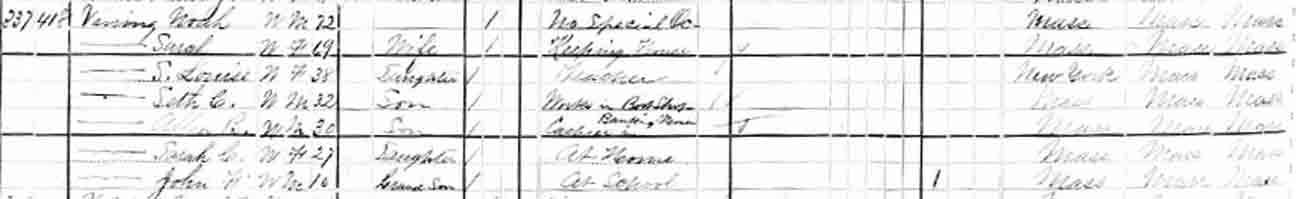 237 418 Noah W M 72 1 No Special Oc- Mass Mass Mass
Sarah W F 69 Wife 1 Keeping House Mass Mass Mass
S. Louise W F 38 Daughter 1 Teacher 1 New York Mass Mass
Seth C. W M 32 Son 1 Works in Boot Shop Mass Mass Mass
W M 30 Son 1 Cashier in Banking House Mass Mass Mass
Sarah C. W F 27 Daughter 1 At Home Mass Mass Mass
John W M 10 Grand Son 1 At School 1 Mass Mass Mass